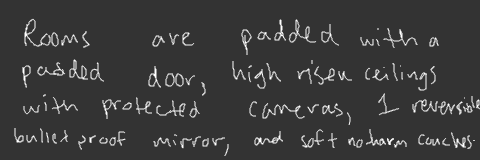 Rooms are padded with a
padded door, high risen ceilings
with protected cameras, 1 reversible
bullet proof mirror, and soft no harm couches.